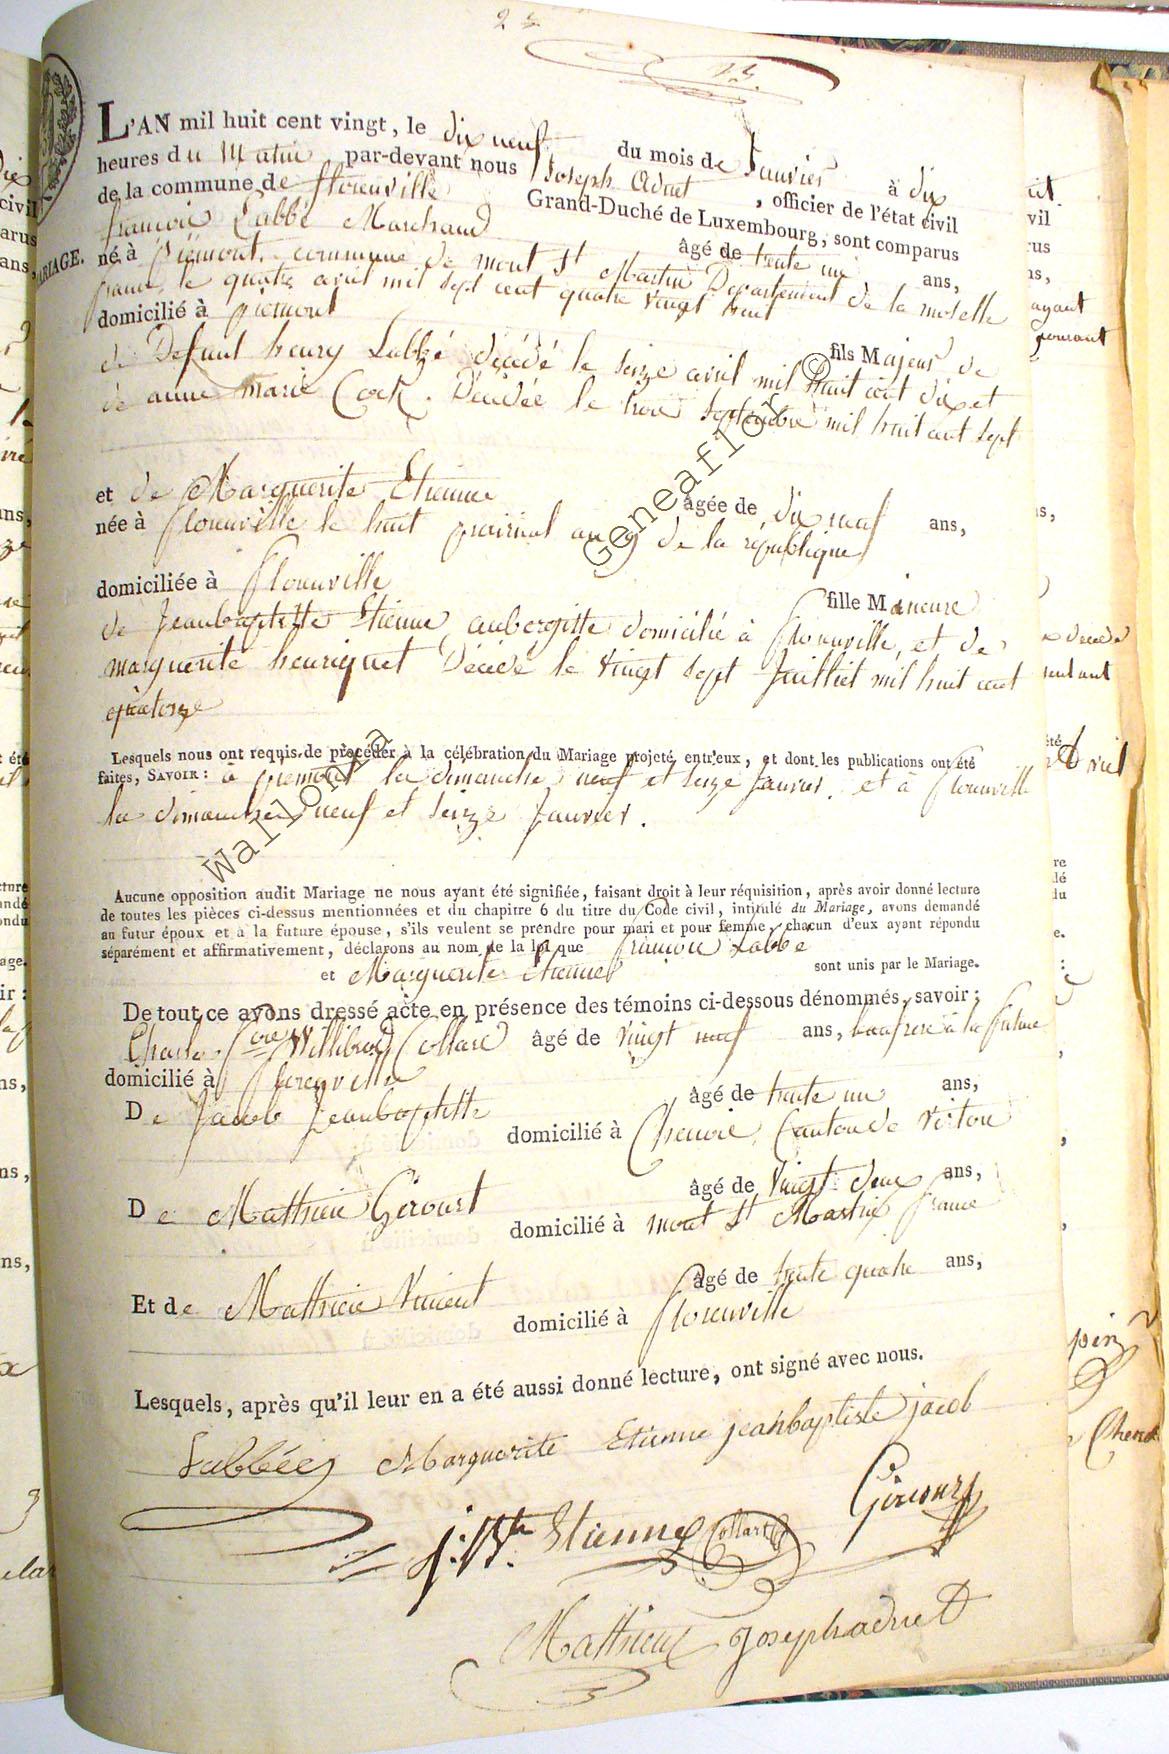 L'AN mil huit cent vingt, le dix neuf du mois de Janvier à dix
heures du Matin, par-devant nous Joseph Adnet, officier de l'état civil
de la commune de florenville Grand-Duché de Luxembourg, sont comparus
francois Labbé Marchand âgé de trente un ans,
né à piémont, commune de mont St Martin Departement de la moselle
france, le quatre avril mil sept cent quatre vingt huit
domicilié à piémont
fils Majeur de
de Defunt henry Labbé décédé le seize avril mil huit cent dix et
de anne marie Cock. Décédée le trois septembre mil huit cent sept
et de Marguerite Etienne âgée de dix neuf ans,
née à florenville le huit prairial an 9 de la republique
domiciliée à florenville
fille Mineure
de Jeanbaptiste Etienne aubergiste domicilié à florenville, et de
marguerite henriquet Décédé le vingt sept Juilliet mil huit cent
quatorze
Lesquels nous ont requis de procéder à la célébration du Mariage projeté entr'eux, et dont les publications ont été
faites, SAVOIR : à piemont la dimanche neuf et seize Janvier, et à florenville
la dimanche neuf et seize Janvier.
Aucune opposition audit Mariage ne nous ayant été signifiée, faisant droit à leur réquisition, après avoir donné lecture
de toutes les pièces ci-dessus mentionnées et du chapitre 6 du titre du Code civil, intitulé du Mariage, avons demandé
au futur époux et à la future épouse, s'ils veulent se prendre pour mari et pour femme, chacun d'eux ayant répondu
séparément et affirmativement, déclarons au nom de la loi que francois Labbé
et Marguerite Etienne sont unis par le Mariage.
De tout ce avons dressé acte en présence des témoins ci-dessous dénommés, savoir :
Charle Willibrod Collard âgé de vingt neuf ans, beaufrere à la future
domicilié à florenville
De Jacob Jeanbaptiste âgé de trente un ans,
domicilié à Chenois, Canton de virton
De Matthieu Gérourt âgé de vingt deux ans,
domicilié à mont St Martin france
Et de Matthieu Vincent âgé de trente quatre ans,
domicilié à florenville
Lesquels, après qu'il leur en a été aussi donné lecture, ont signé avec nous.
Labbée Marguerite Etienne jeanbaptiste jacob
J: Bte Etienne Collard
Mathieu Joseph adnet
MARIAGE.
Wallonia Geneaflor ©